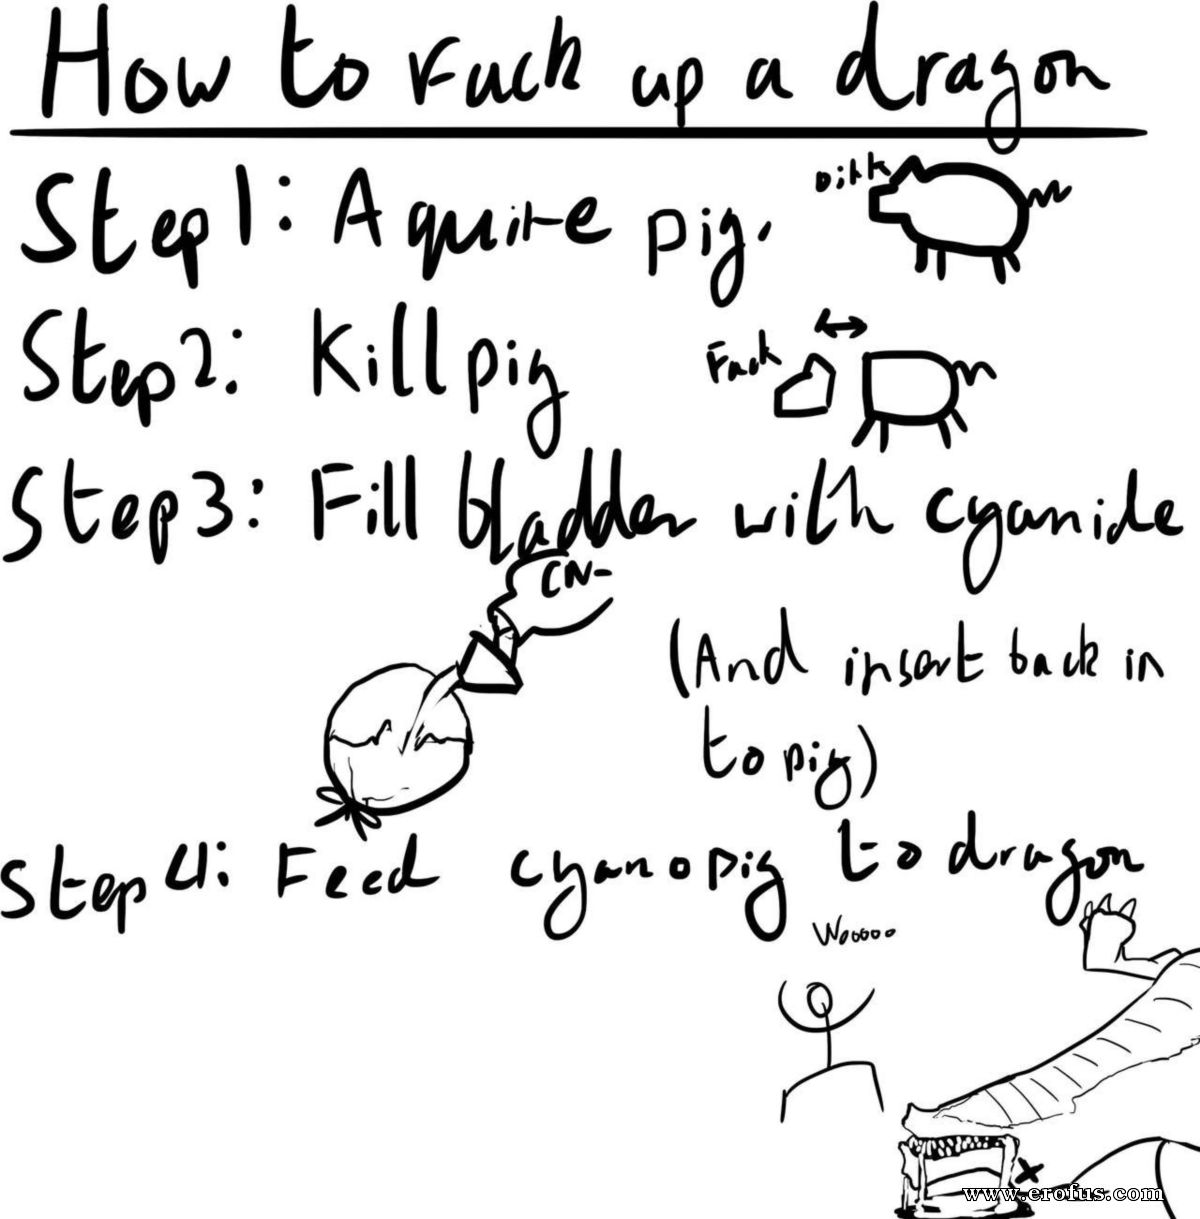 How to Fuck up a dragon
Step 1: Aquire pig.
Oink
Step 2: Kill pig
Fuck
Step 3: Fill bladder with cyanide
CN-
(And insert back in
to pig)
Step 4: Feed cyanopig to dragon
Wooooo
www.erofus.com